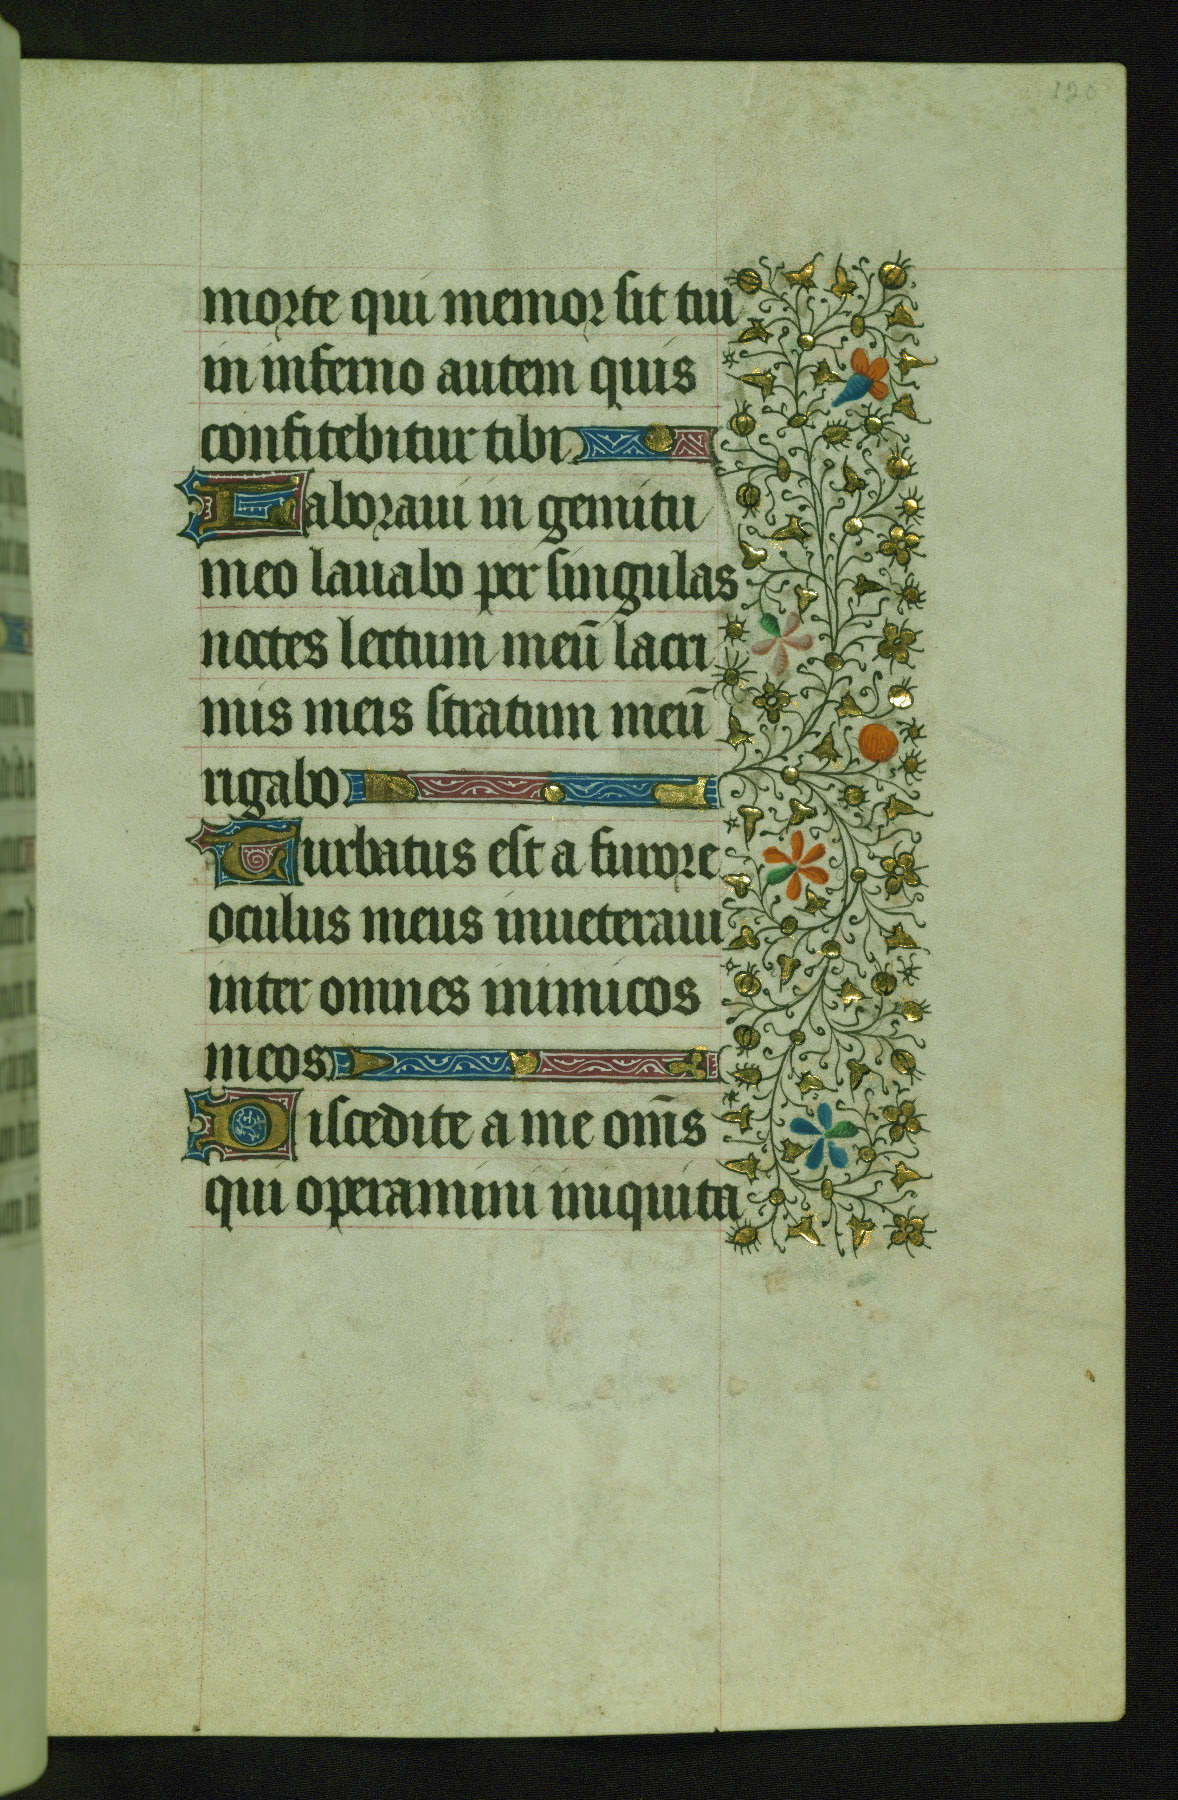 120
morte qui memor sit tui
in inferno autem quis
confitebitur tibi
Laboraui in gemitu
meo lauabo per singulas
noctes lectum meū lacri
mis meis stratum meū
rigabo
Turbatus est a furore
oculus meus inueteraui
inter omnes inimicos
meos
Discedite a me om̄s
qui operamini iniquita